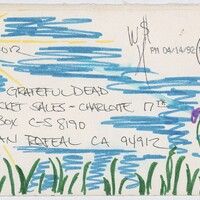 PM 04/14/92
GRATEFUL DEAD
CKET SALES - CHARLOTTE 17TH
BOX C-S 8190
AN RAFEAL CA 94912